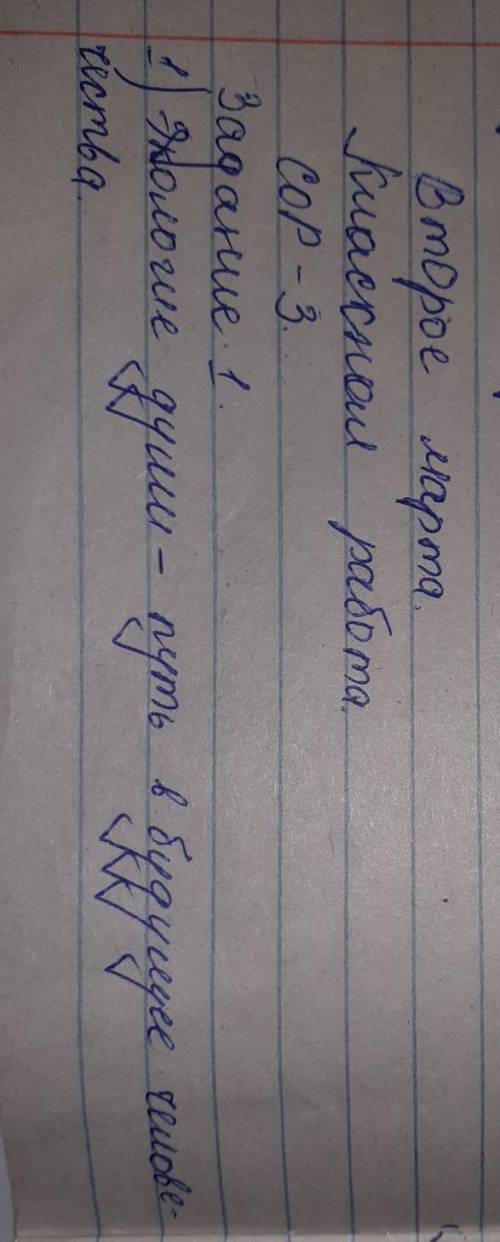 Второе марта.
Классная работа.
СОР-3.
Задание 1.
1) Экология души - путь в будущее челове-
чества.